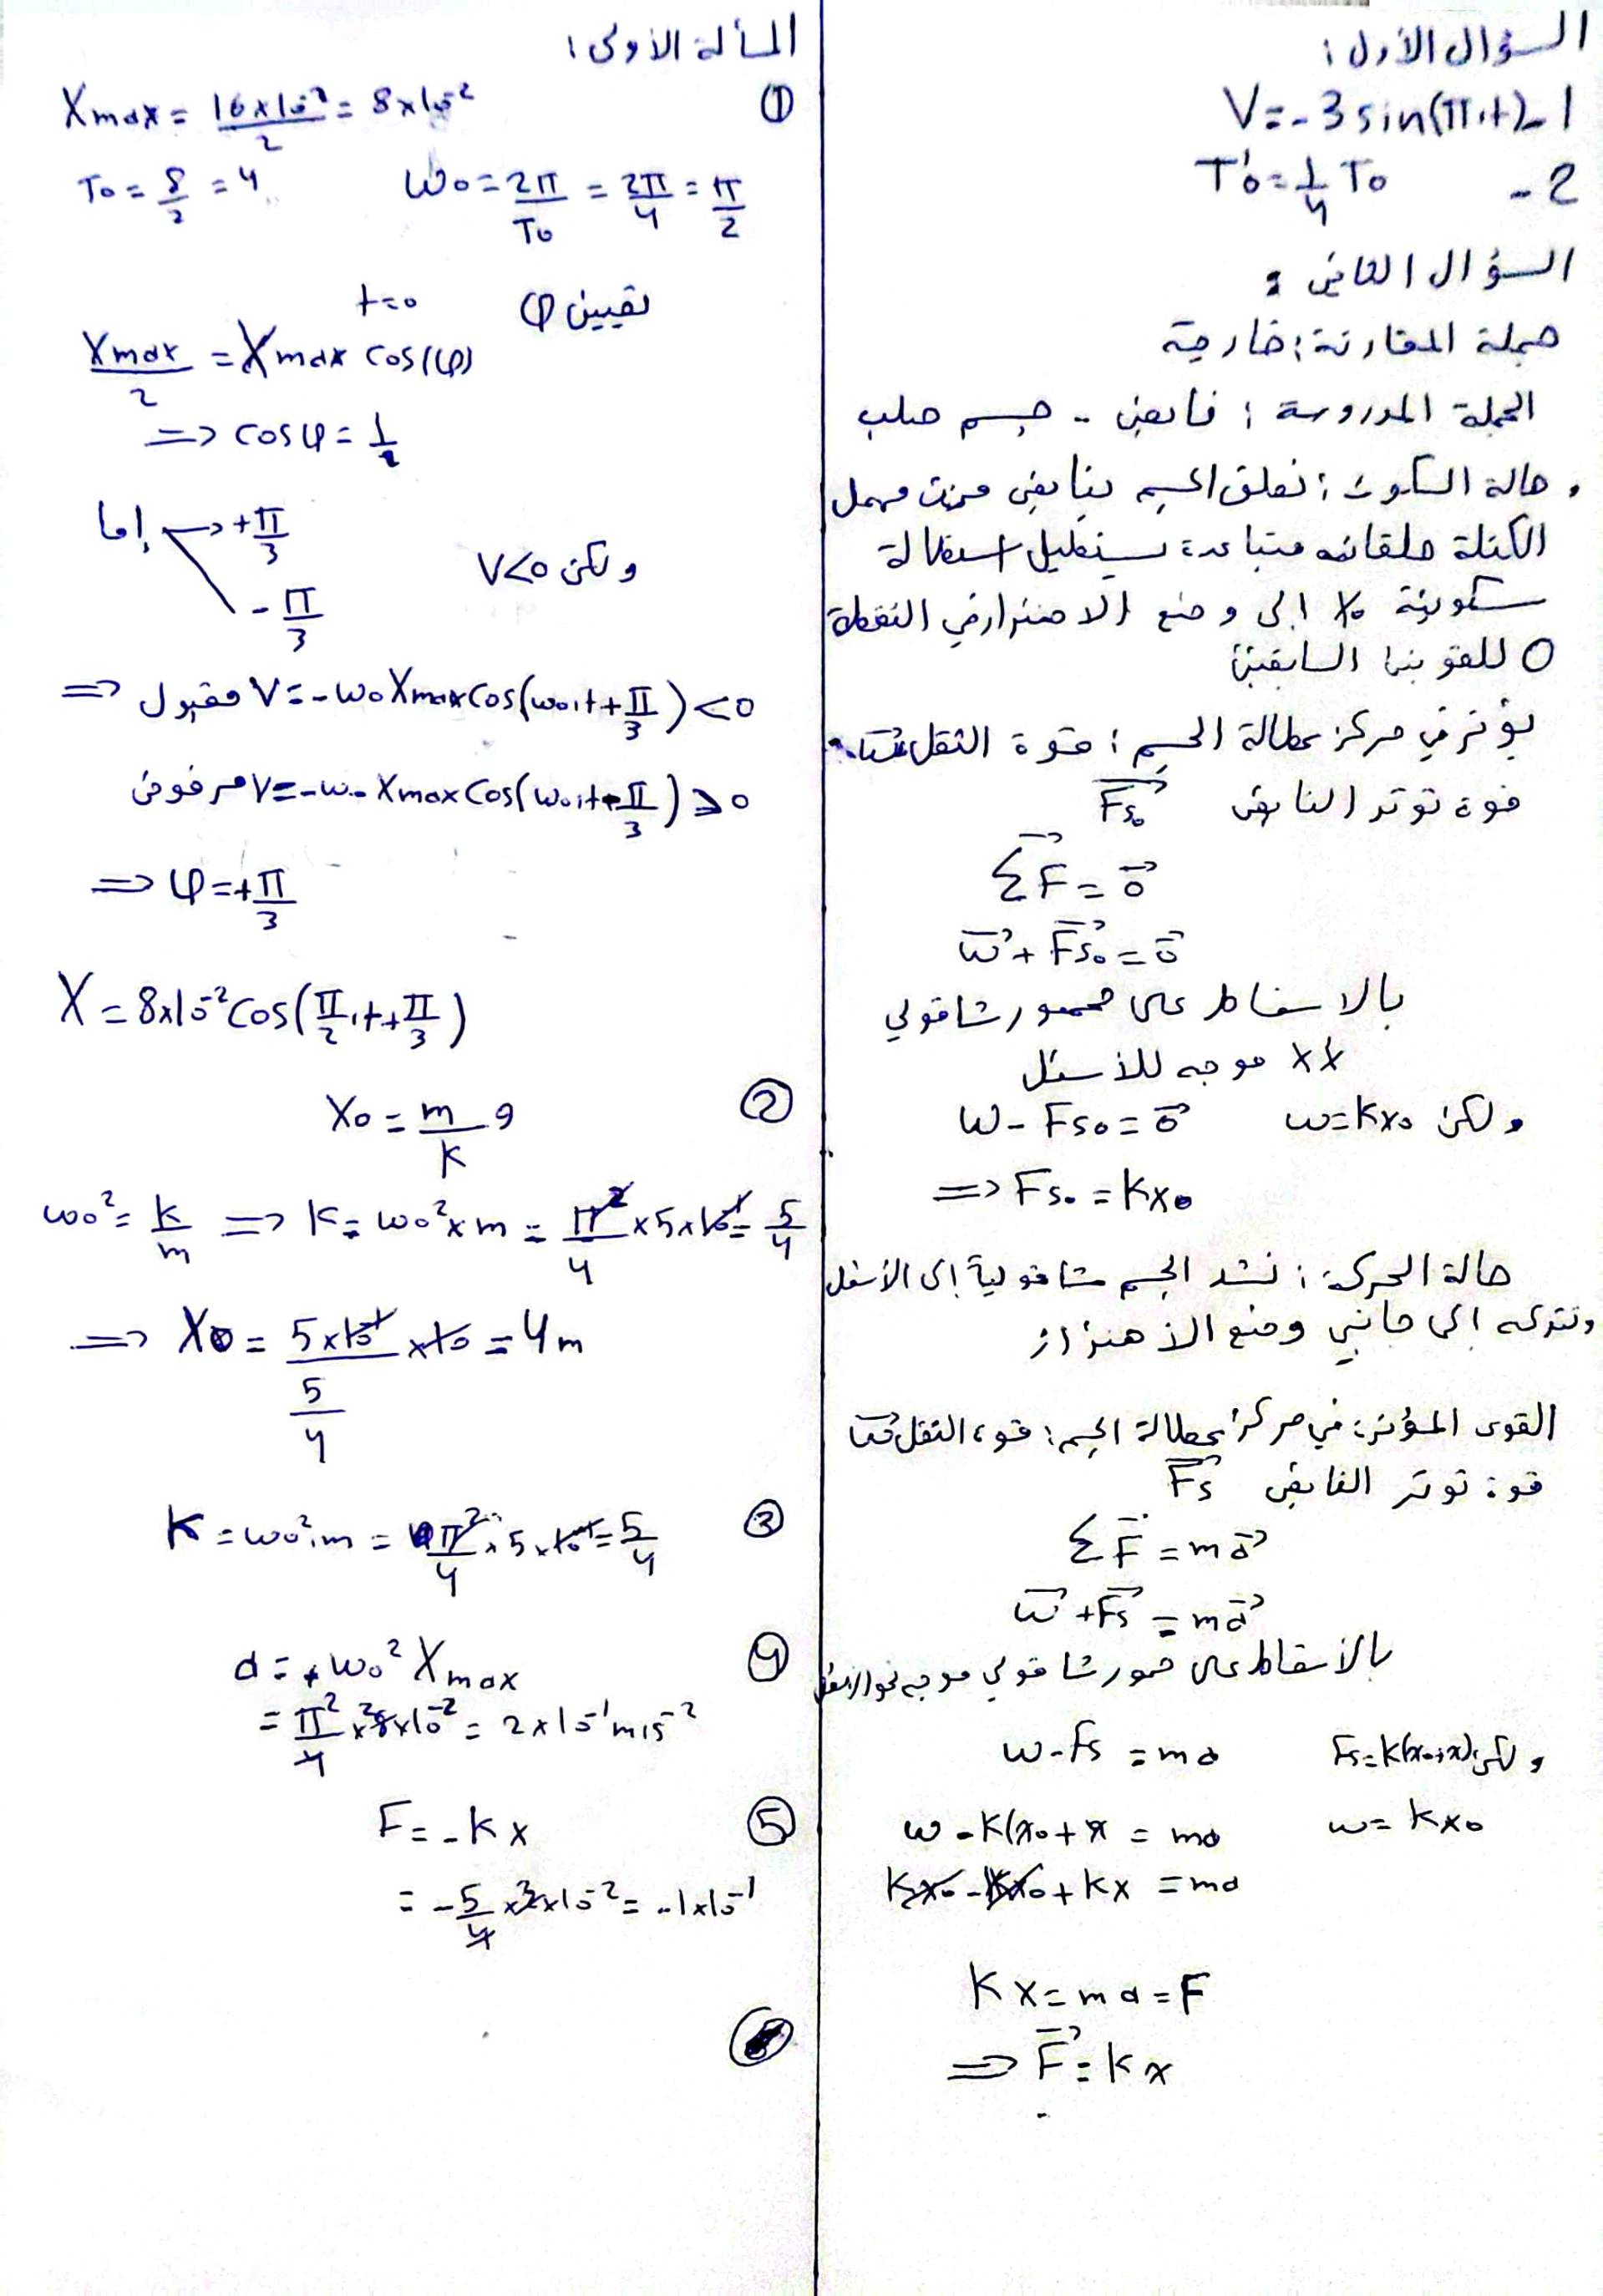 السؤال الأول :
V=-3sin(π.t) -1
T'0=1/4 T0 -2
السؤال الثاني :
جملة المقارنة : خارجية
الجملة المدروسة : نابض - جسم صلب
. حالة السكون : نعلق الجسم بنابض مرن مهمل
الكتلة حلقاته متباعدة يستطيل استطالة
سكونية x0 إلى وضع الاهتزاز في النقطة
O للقوتين السابقتين
يؤثر في مركز عطالة الجسم : قوة الثقل W
قوة توتر النابض Fs0
ΣF = 0
W + Fs0 = 0
بالاسقاط على محور شاقولي
xx' موجه للأسفل
W - Fs0 = 0 ولكن w=kx0
=> Fs0 = kx0
حالة الحركة : نشد الجسم شاقولياً إلى الأسفل
ونتركه إلى جانبي وضع الاهتزاز
القوى المؤثرة في مركز عطالة الجسم : قوة الثقل W
قوة توتر النابض Fs
ΣF = ma
W + Fs = ma
بالأسقاط على محور شاقولي موجه نحو الأسفل
w - Fs = ma ولكن Fs=k(x0+x)
w - k(x0+x = ma w= kx0
kx0 - kx0 + kx = ma
kx = ma = F
=> F = kx
المسألة الأولى :
①
Xmax = 16×10⁻²/2 = 8×10⁻²
T0 = 8/2 = 4 ω0 = 2π/T0 = 2π/4 = π/2
تعيين φ t=0
Xmax/2 = Xmax cos(φ)
=> cosφ = 1/2
إما → +π/3
- π/3 ولكن V<0
=> مقبول V=-ω0Xmaxcos(ω0.t+π/3) <0
مرفوض V=-ω0 Xmaxcos(ω0.t-π/3) ⩾0
=> φ=+π/3
X = 8×10⁻²cos(π/2.t+π/3)
② X0 = m/k g
ω0² = k/m => k = ω0²×m = π²/4 ×5×10⁻¹= 5/4
=> X0 = 5×10⁻¹/(5/4) ×10 = 4m
③ K = ω0².m = π²/4 ×5×10⁻¹= 5/4
④ a = +ω0² Xmax
= π²/4 ×8×10⁻² = 2×10⁻¹ m.s⁻²
⑤ F = -kx
= -5/4 ××10⁻² = -1×10⁻¹